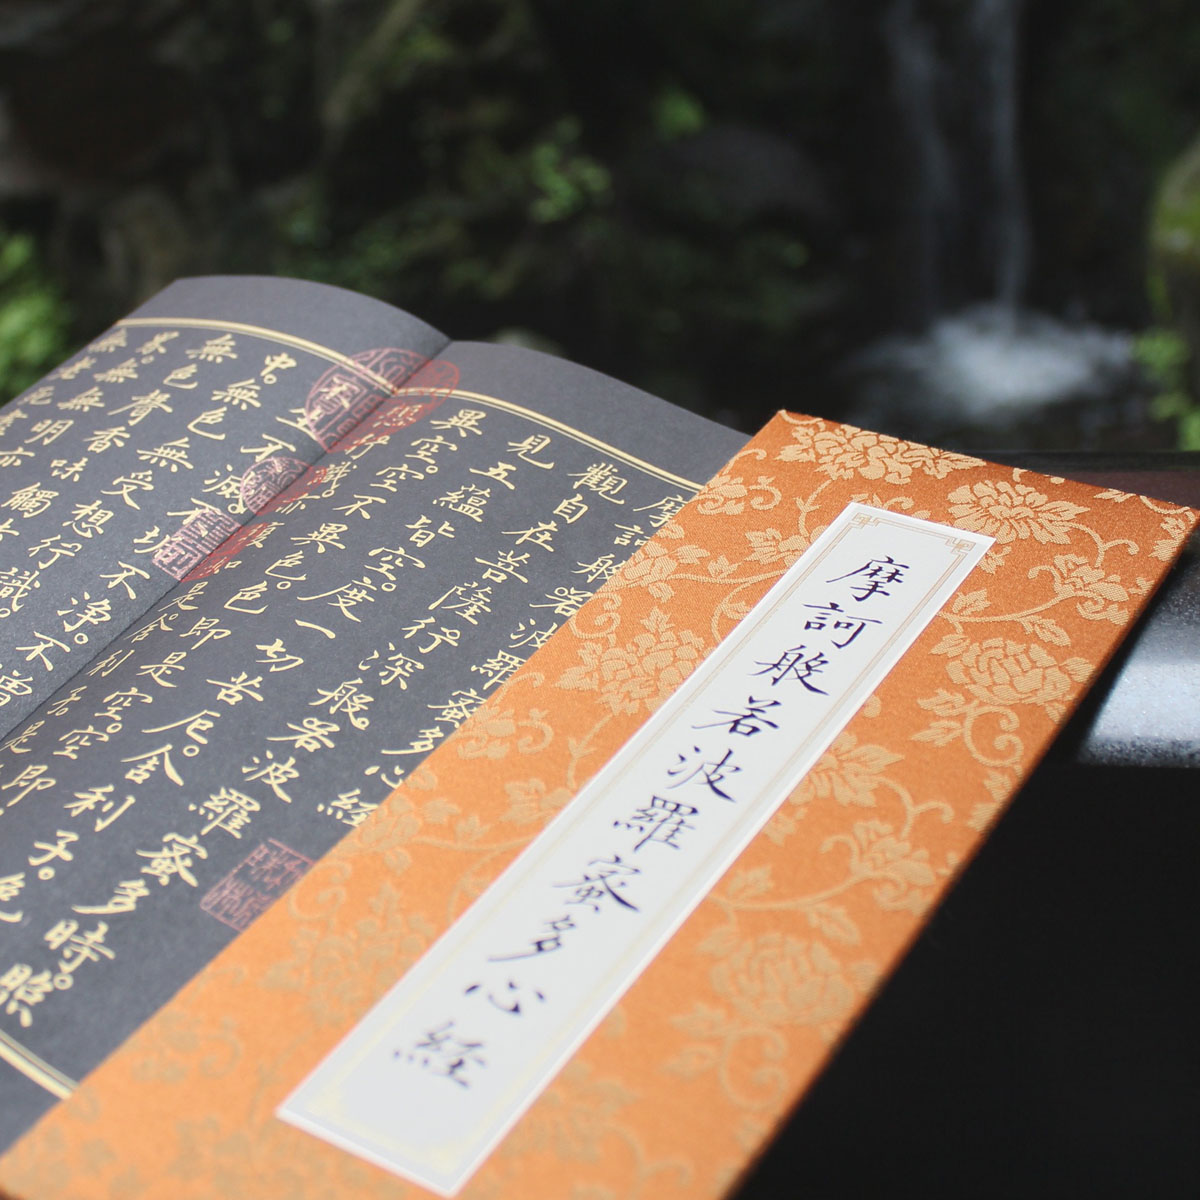 摩訶般若波羅蜜多心経
摩訶般若波羅蜜多心經
觀自在菩薩行深般若波羅蜜多時。照
見五蘊皆空。度一切苦厄。舍利子。色
異空。空不異色。色即是空。空即
想行識。亦復如是。舍利子是
不滅。不垢不淨。不增
中。無色無受想行識。
無色聲香味觸
界。無無明亦